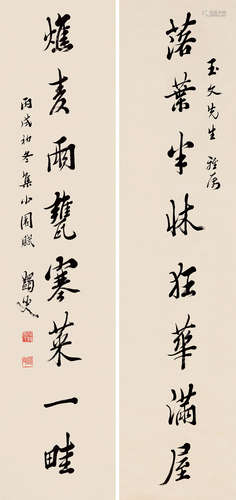 玉文先生 雅屬
落葉半牀狂華滿屋
燋麦兩甕寒菜一畦
丙戌初冬集小園賦 蠲叟